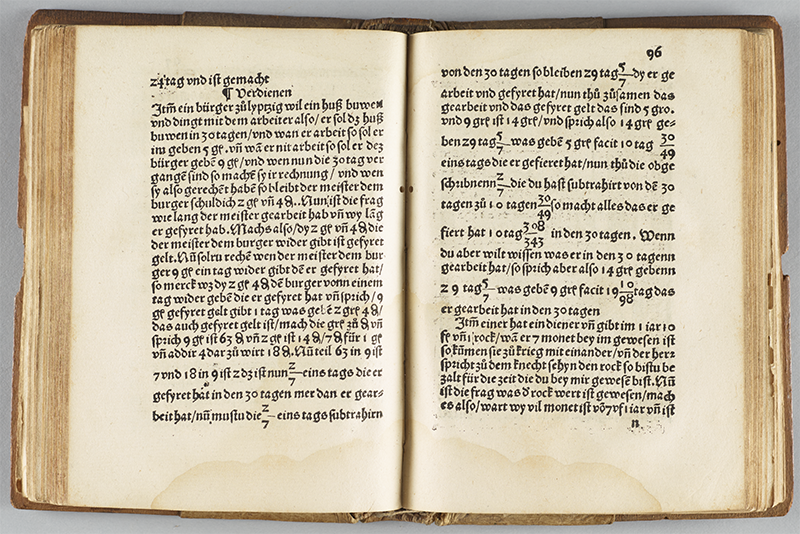 24 tag vnd ist gemacht
¶ Verdienen
Itm̃ ein bürger zů lypzig wil ein huß buwen
vnd dingt mit dem arbeiter also/er sol dz huß
buwen in 30 tagen/vnd wan er arbeit so sol er
im geben 5 gr. vñ wan er nit arbeit so sol er dez
bürger gebẽ 9 gr/vnd wen nun die 30 tag ver
gangẽ sind so machẽ sy ir rechnung/vnd wen
sy also gerechẽt habẽ so bleibt der meister dem
burger schildich 2 gr vñ 4 ₰..Nun ist die frag
wie lang der meister gearbeit hab vñ wy lãg
er gefyret hab. Machs also/dy 2 gr vñ 4 ₰ die
der meister dem burger wider gibt ist gefyret
gelt. Nũ solru rechẽ wen der meister dem bur
ger 9 gr ein tag wider gibt dẽ er gefyret hat/
so merck wz dy 2 gr 4 ₰ dẽ burger vonn einem
tag wider gebẽ die er gefyret hat vñ sprich/9
gr gefyret gelt gibt 1 tag was gebẽ 2 gre 4 ₰/
das auch gefyret gelt ist/mach die gre zů ₰ vñ
sprich 9 gr ist 63 ₰ vñ 2 gr ist 14 ₰/7 ₰ für 1 gr
vñ addir 4 dar zů wirt 18 ₰. Nũ teil 63 in 9 ist
7 vnd 18 in 9 ist 2 dz ist nun 2/7 eins tags die er
gefyret hat in den 30 tagen mer dan er gear-
beit hat/nũ mustu die 2/7 eins tags subtrahirn
96
von den 30 tagen so bleiben 29 tag 5/7 dy er ge
arbeit vnd gefyret hat/nun thů zůsamen das
gearbeit vnd das gefyret gelt das sind 5 gro.
vnd 9 gre ist 14 gre/vnd sprich also 14 gre ge-
ben 29 tag 5/7 was gebẽ 5 gre facit 10 tag 30/49
eins tags die er gefieret hat/nun thů die obge
schribnenn 2/7 die du hast subtrahirt von dẽ 30
tagen zů 10 tagen 30/49 so macht alles das er ge
fiert hat 10 tag 308/343 in den 30 tagen. Wenn
du aber wilt wissen was er in den 30 tagenn
gearbeit hat/so sprich aber also 14 gre gebenn
29 tag 5/7 was gebẽ 9 gre facit 19 10/98 tag das
er gearbeit hat in den 30 tagen
Itm̃ einer hat ein diener vñ gibt im 1 iar 10
fe vñ 1 rock/wã er 7 monet bey im gewesen ist
so kũmen sie zů krieg mit einander/vñ der herr
spricht zů dem knecht se hyn den rock so bistu be
zalt für die zeit die du bey mir gewesẽ bist. Nũ
ist die frag was d rock wert ist gewesen/mach
es also/wart wy vil monet ist võ 7 vf 1 iar vñ ist
n